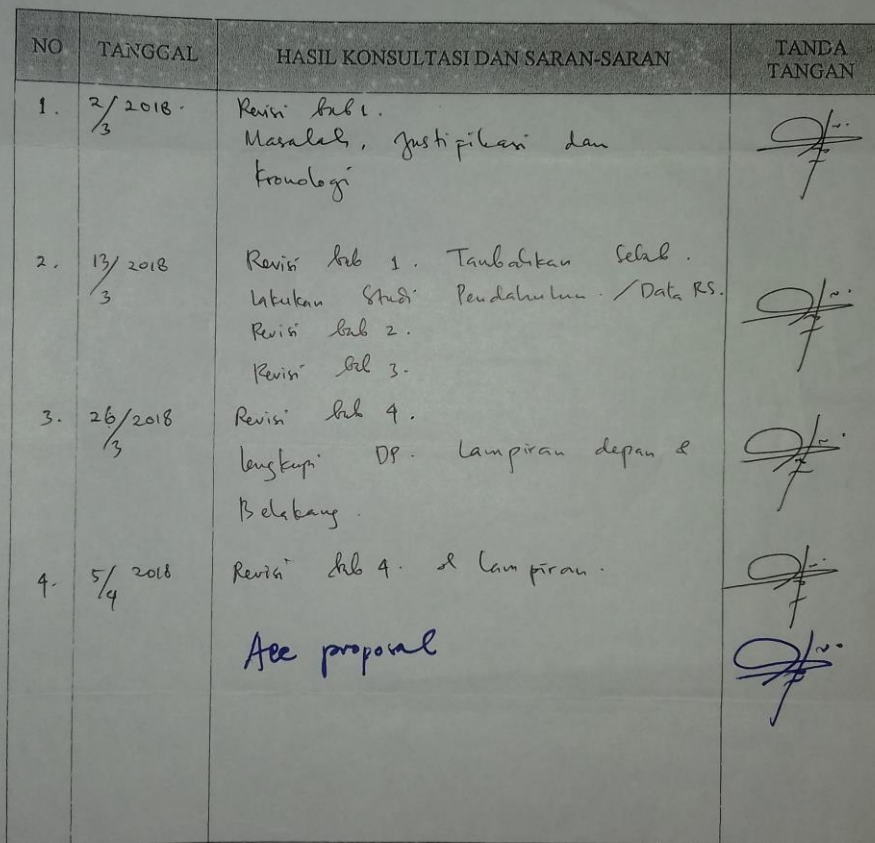 NO TANGGAL HASIL KONSULTASI DAN SARAN-SARAN TANDA TANGAN
1. 2/3 2018. Revisi bab 1.
Masalah, Justipikasi dan
Kronologi
2. 13/3 2018 Revisi bab 1. Tambahkan
Lakukan Studi Pendahuluan. /Data RS.
Revisi bab 2.
Revisi bab 3.
3. 26/3 2018 Revisi bab 4.
lengkapi DP. Lampiran depan &
Belakang.
4. 5/4 2018 Revisi bab 4. & lampiran.
Acc proposal